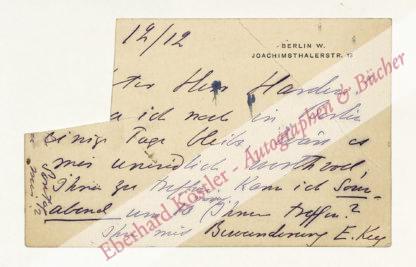 12/12
BERLIN W.
JOACHIMSTHALERSTR.
Herr Harden
da ich noch in Berlin
einige Tage bleibe wäre es
mir unendlich werthvoll
Ihnen zu treffen. Kann ich Sonn
abend um 10 Ihnen treffen?
Ihre mit Bewunderung E. Key
Eberhard Köstler - Autographen & Bücher